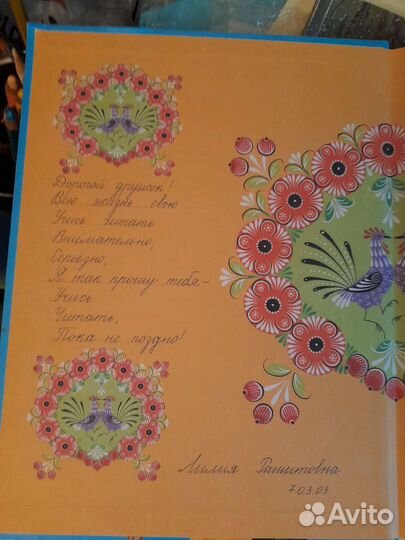 Дорогой дружок!
Всю жизнь свою
Учись читать
Внимательно,
Серьёзно,
Я так прошу тебя-
Учись
Читать,
Пока не поздно!
Лилия Рашитовна
7.03.03
Avito